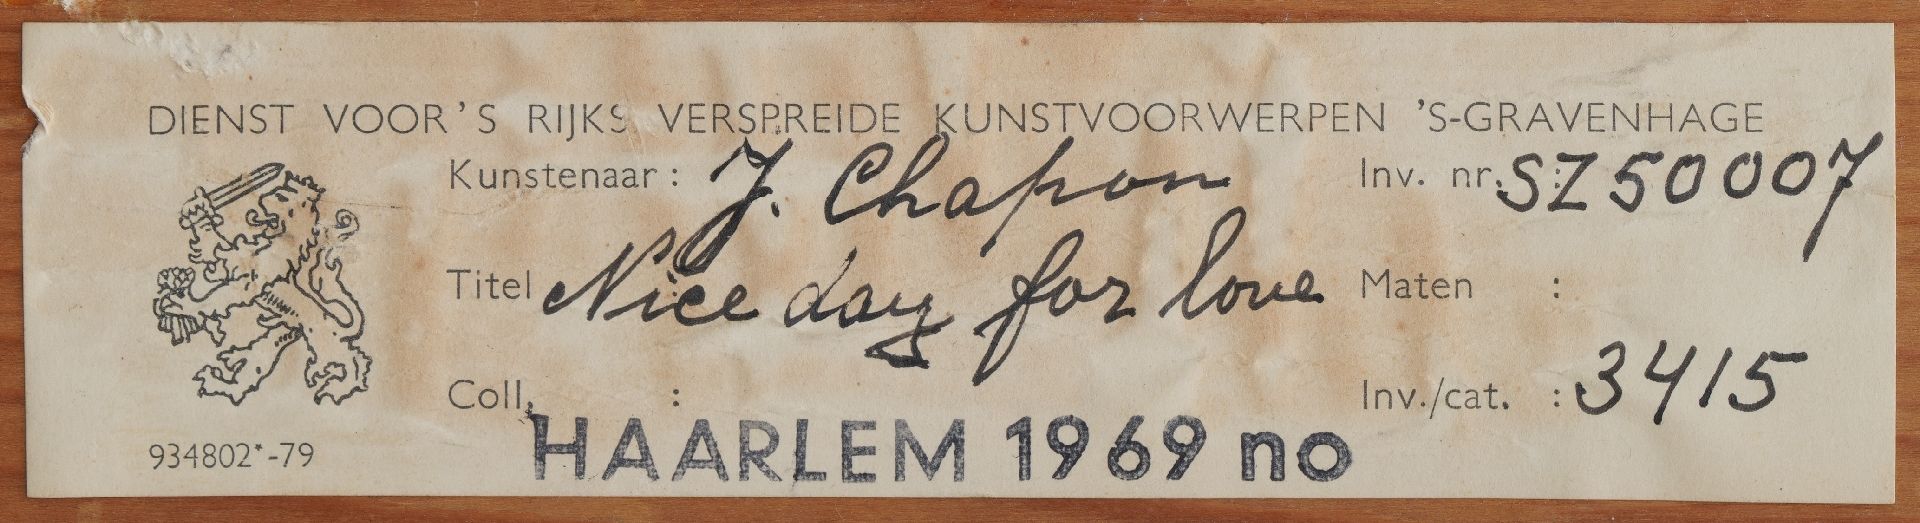 DIENST VOOR 'S RIJKS VERSPREIDE KUNSTVOORWERPEN 'S-GRAVENHAGE
Kunstenaar : J. Chapon Inv. nr. : SZ50007
Titel : Nice day for love Maten :
Coll. : Inv./cat. : 3415
HAARLEM 1969 no
934802*-79